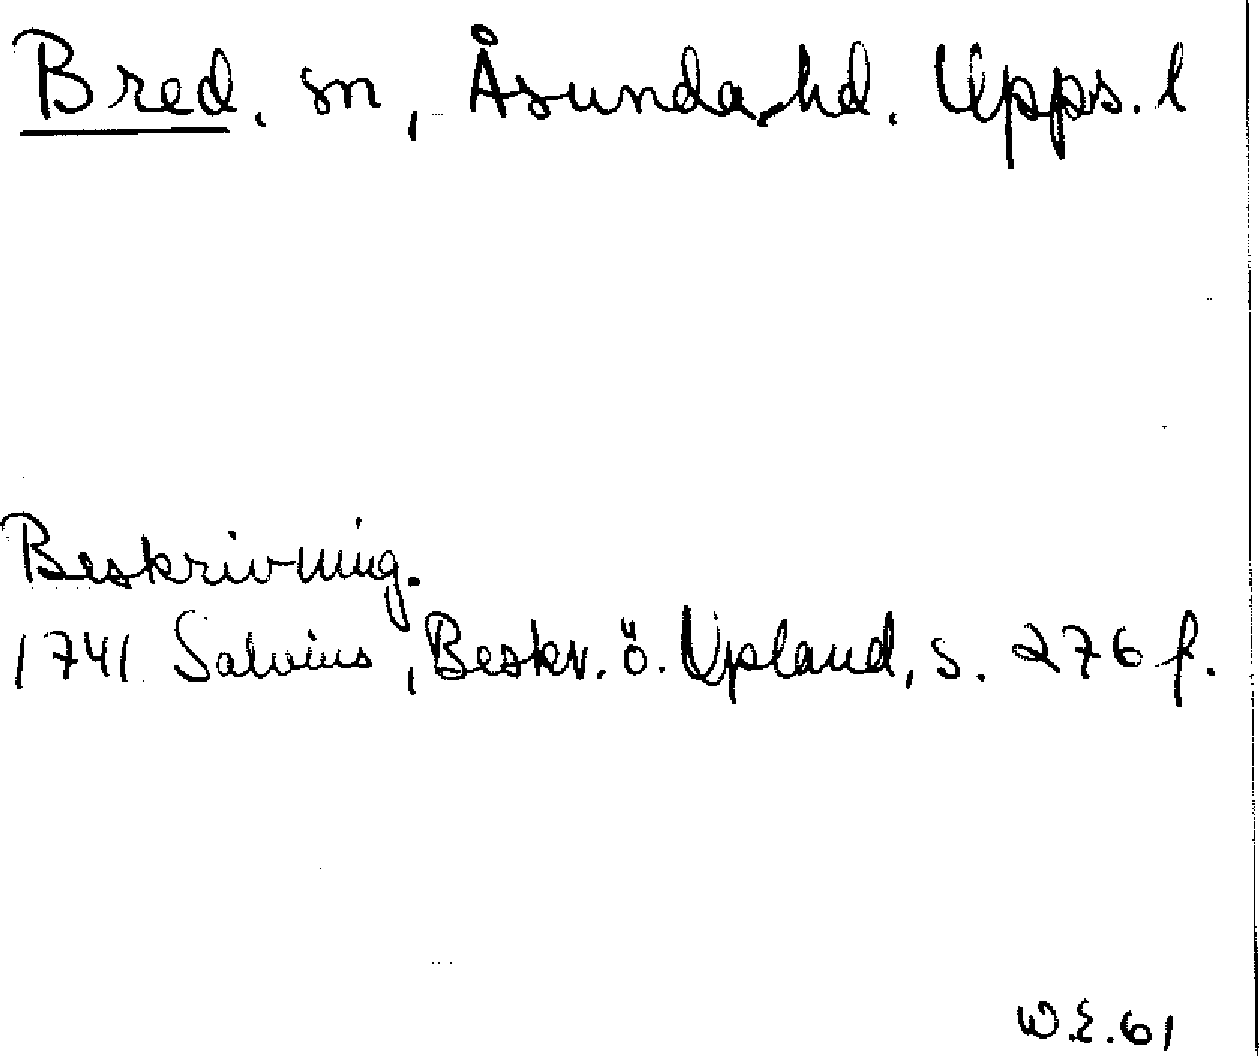 Bred. sn, Åsunda hd. Upps. l
Beskrivning.
1741 Salvius, Beskr. ö. Upland, s. 276 f.
W.E. 61